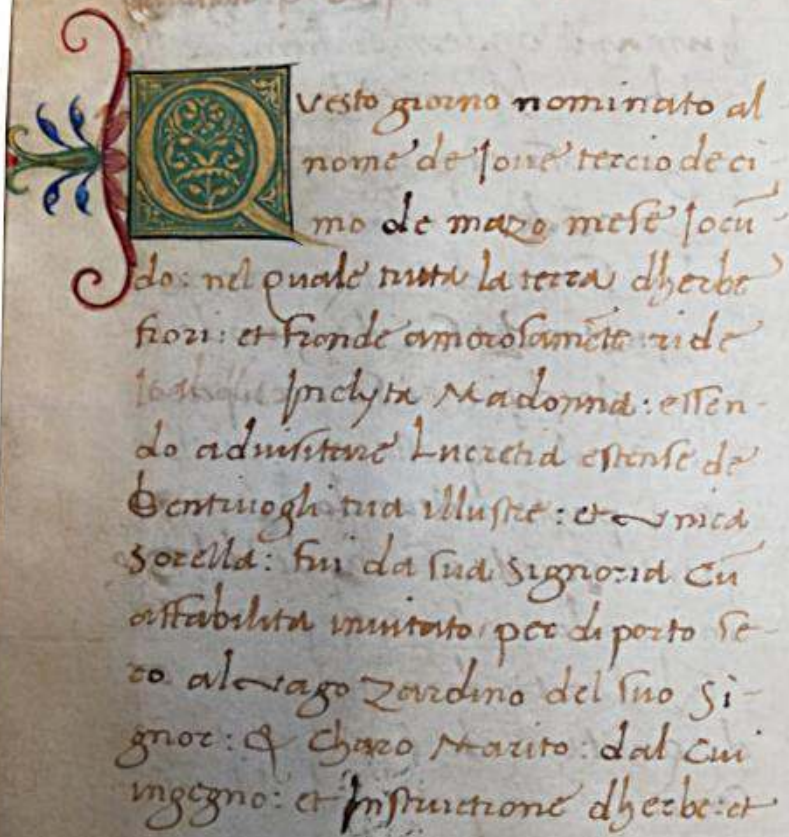 Questo giorno nominato al
nome de Joue tercio deci
mo de mazo mese Jocū
do: nel quale tutta la terra dherbe
fiori: et fronde amorosamēte ride
Inclyta Madonna: essen-
do aduisitare Lucretia estense de
Bentiuogli tua illustre: et vnica
Sorella: fui da sua Signoria Cū
affabilita inuitato per diporto se-
co al vago Zardino del suo Si-
gnor: & Charo Marito: dal Cui
ingegno: et Instructione dherbe: et